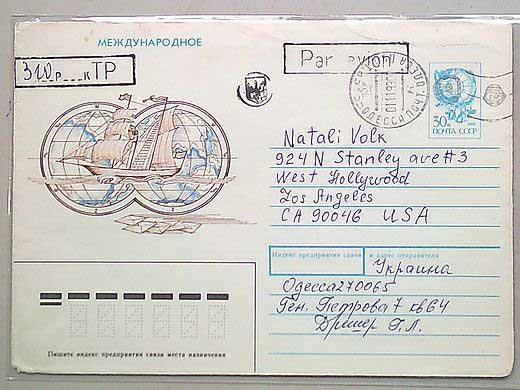 МЕЖДУНАРОДНОЕ
310 р к ТР
Par avion
ОДЕССА
30к
ПОЧТА СССР
Natali Volk
924 N Stanley ave #3
West Hollywood
Los Angeles
CA 90046 USA
Индекс предприятия связи и адрес отправителя
Украина
Одесса 270065
Ген. Петрова 7 кв 64
Г.Л.
Пишите индекс предприятия связи места назначения